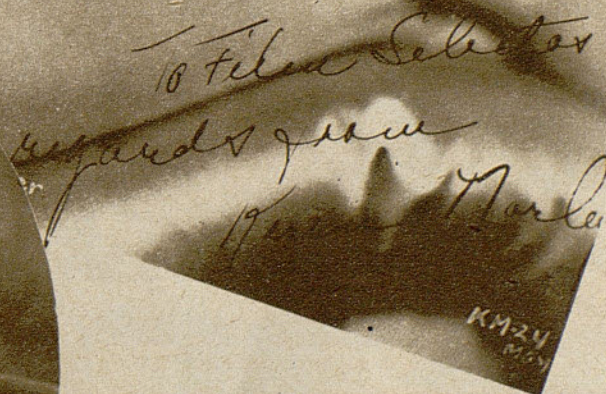 To Films Selectos
regards from
Karen Morle
KM-24